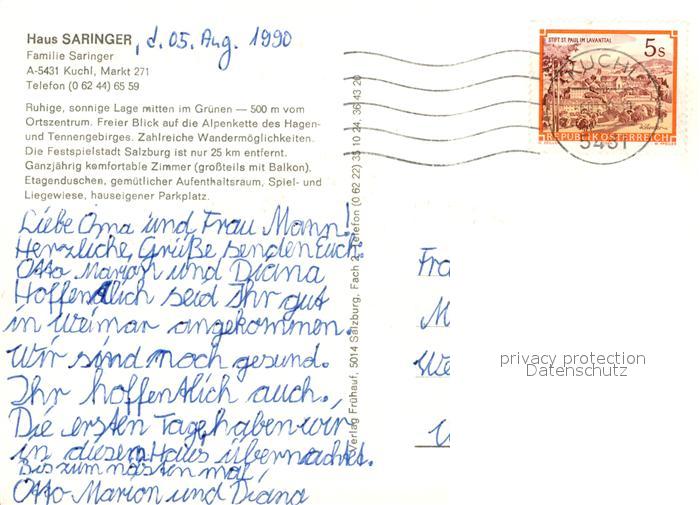 Haus SARINGER, d. 05. Aug. 1990
Familie Saringer
A-5431 Kuchl, Markt 271
Telefon (0 62 44) 65 59
Ruhige, sonnige Lage mitten im Grünen — 500 m vom
Ortszentrum. Freier Blick auf die Alpenkette des Hagen-
und Tennengebirges. Zahlreiche Wandermöglichkeiten.
Die Festspielstadt Salzburg ist nur 25 km entfernt.
Ganzjährig komfortable Zimmer (großteils mit Balkon).
Etagenduschen, gemütlicher Aufenthaltsraum, Spiel- und
Liegewiese, hauseigener Parkplatz.
Liebe Oma und Frau Mann!
Herzliche Grüße senden Euch
Otto Marion und Diana
Hoffendlich seid Ihr gut
in Weimar angekommen.
Wir sind noch gesund.
Ihr hoffentlich auch.,
Die ersten Tage haben wir
in diesem Haus übernachtet.
Bis zum nästen mal,
Otto Marion und Diana
Verlag Frühauf, 5014 Salzburg, Fach 2, Telefon (0 62 22) 35 10 24, 36 43 20
STIFT ST. PAUL IM LAVANTTAL
5 S
REPUBLIK ÖSTERREICH
KUCHL
5431
Fra
M
We
privacy protection
Datenschutz